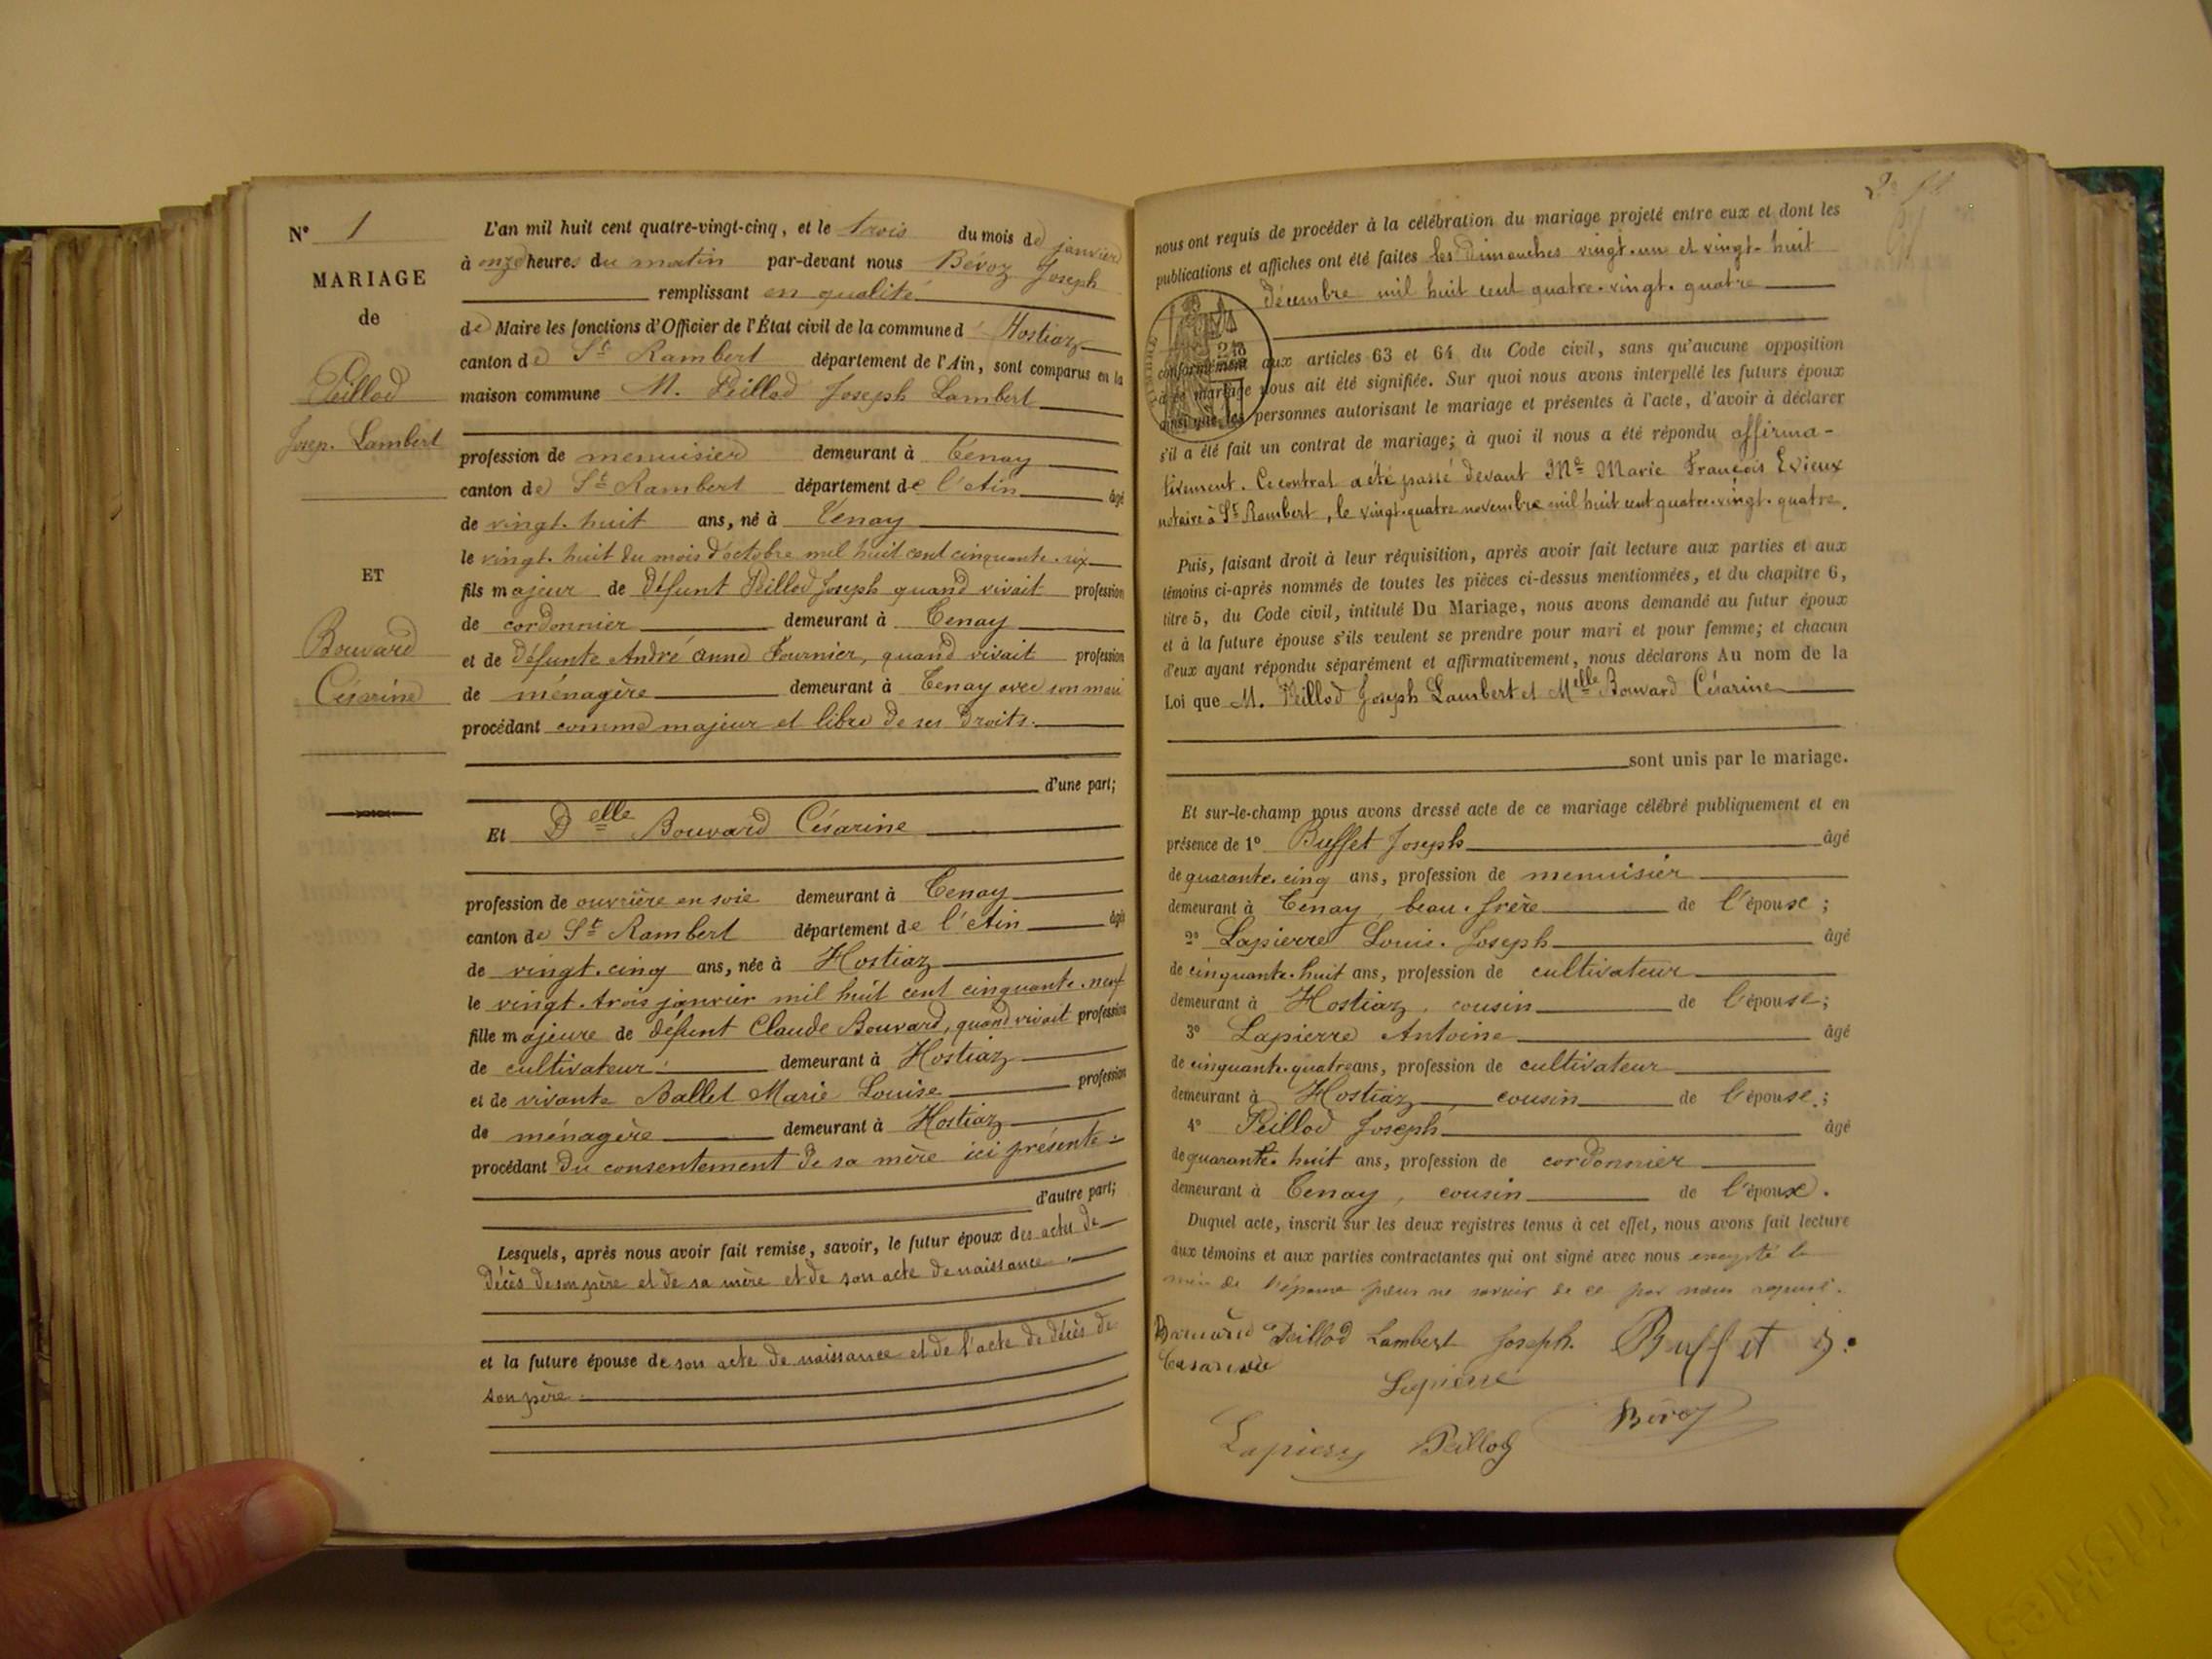 N° 1
MARIAGE
de
Peillod
Josep. Lambert
ET
Bouvard
Césarine
L'an mil huit cent quatre-vingt-cinq, et le trois du mois de janvier
à onze heures du matin par-devant nous Bévoz Joseph
remplissant en qualité
de Maire les fonctions d'Officier de l'État civil de la commune d'Hostiaz
canton de St Rambert département de l'Ain, sont comparus en la
maison commune M. Peillod Joseph Lambert
profession de menuisier demeurant à Tenay
canton de St Rambert département de l'Ain âgé
de vingt-huit ans, né à Tenay
le vingt-huit du mois d'octobre mil huit cent cinquante-six
fils majeur de défunt Peillod Joseph quand vivait profession
de cordonnier demeurant à Tenay
et de défunte André Anne Fournier, quand vivait profession
de ménagère demeurant à Tenay avec son mari
procédant comme majeur et libre de ses droits.
d'une part;
Et Delle Bouvard Césarine
profession de ouvrière en soie demeurant à Tenay
canton de St Rambert département de l'Ain âgée
de vingt-cinq ans, née à Hostiaz
le vingt-trois janvier mil huit cent cinquante-neuf
fille majeure de défunt Claude Bouvard, quand vivait profession
de cultivateur demeurant à Hostiaz
et de vivante Ballet Marie Louise profession
de ménagère demeurant à Hostiaz
procédant du consentement de sa mère ici présente.
d'autre part;
Lesquels, après nous avoir fait remise, savoir, le futur époux des actes de
décès de son père et de sa mère et de son acte de naissance.
et la future épouse de son acte de naissance et de l'acte de décès de
son père.
nous ont requis de procéder à la célébration du mariage projeté entre eux et dont les
publications et affiches ont été faites les Dimanches vingt-un et vingt-huit
décembre mil huit cent quatre-vingt-quatre
conformément aux articles 63 et 64 du Code civil, sans qu'aucune opposition
à ce mariage nous ait été signifiée. Sur quoi nous avons interpellé les futurs époux
ainsi que les personnes autorisant le mariage et présentes à l'acte, d'avoir à déclarer
s'il a été fait un contrat de mariage; à quoi il nous a été répondu affirma-
tivement. Ce contrat a été passé devant Me Marie François Evieux
notaire à St Rambert, le vingt-quatre novembre mil huit cent quatre-vingt-quatre.
Puis, faisant droit à leur réquisition, après avoir fait lecture aux parties et aux
témoins ci-après nommés de toutes les pièces ci-dessus mentionnées, et du chapitre 6,
titre 5, du Code civil, intitulé Du Mariage, nous avons demandé au futur époux
et à la future épouse s'ils veulent se prendre pour mari et pour femme; et chacun
d'eux ayant répondu séparément et affirmativement, nous déclarons Au nom de la
Loi que M. Peillod Joseph Lambert et Melle Bouvard Césarine
sont unis par le mariage.
Et sur-le-champ nous avons dressé acte de ce mariage célébré publiquement et en
présence de 1° Buffet Joseph âgé
de quarante-cinq ans, profession de menuisier
demeurant à Tenay, beau-frère de l'épouse;
2° Lapierre Louis-Joseph âgé
de cinquante-huit ans, profession de cultivateur
demeurant à Hostiaz, cousin de l'épouse;
3° Lapierre Antoine âgé
de cinquante-quatre ans, profession de cultivateur
demeurant à Hostiaz cousin de l'épouse;
4° Peillod Joseph âgé
de quarante-huit ans, profession de cordonnier
demeurant à Tenay, cousin de l'époux.
Duquel acte, inscrit sur les deux registres tenus à cet effet, nous avons fait lecture
aux témoins et aux parties contractantes qui ont signé avec nous excepté la
mère de l'épouse pour ne savoir de ce par nous requise.
Peillod Lambert Joseph. Buffet J.
Lapierre
Peillod Bévoz